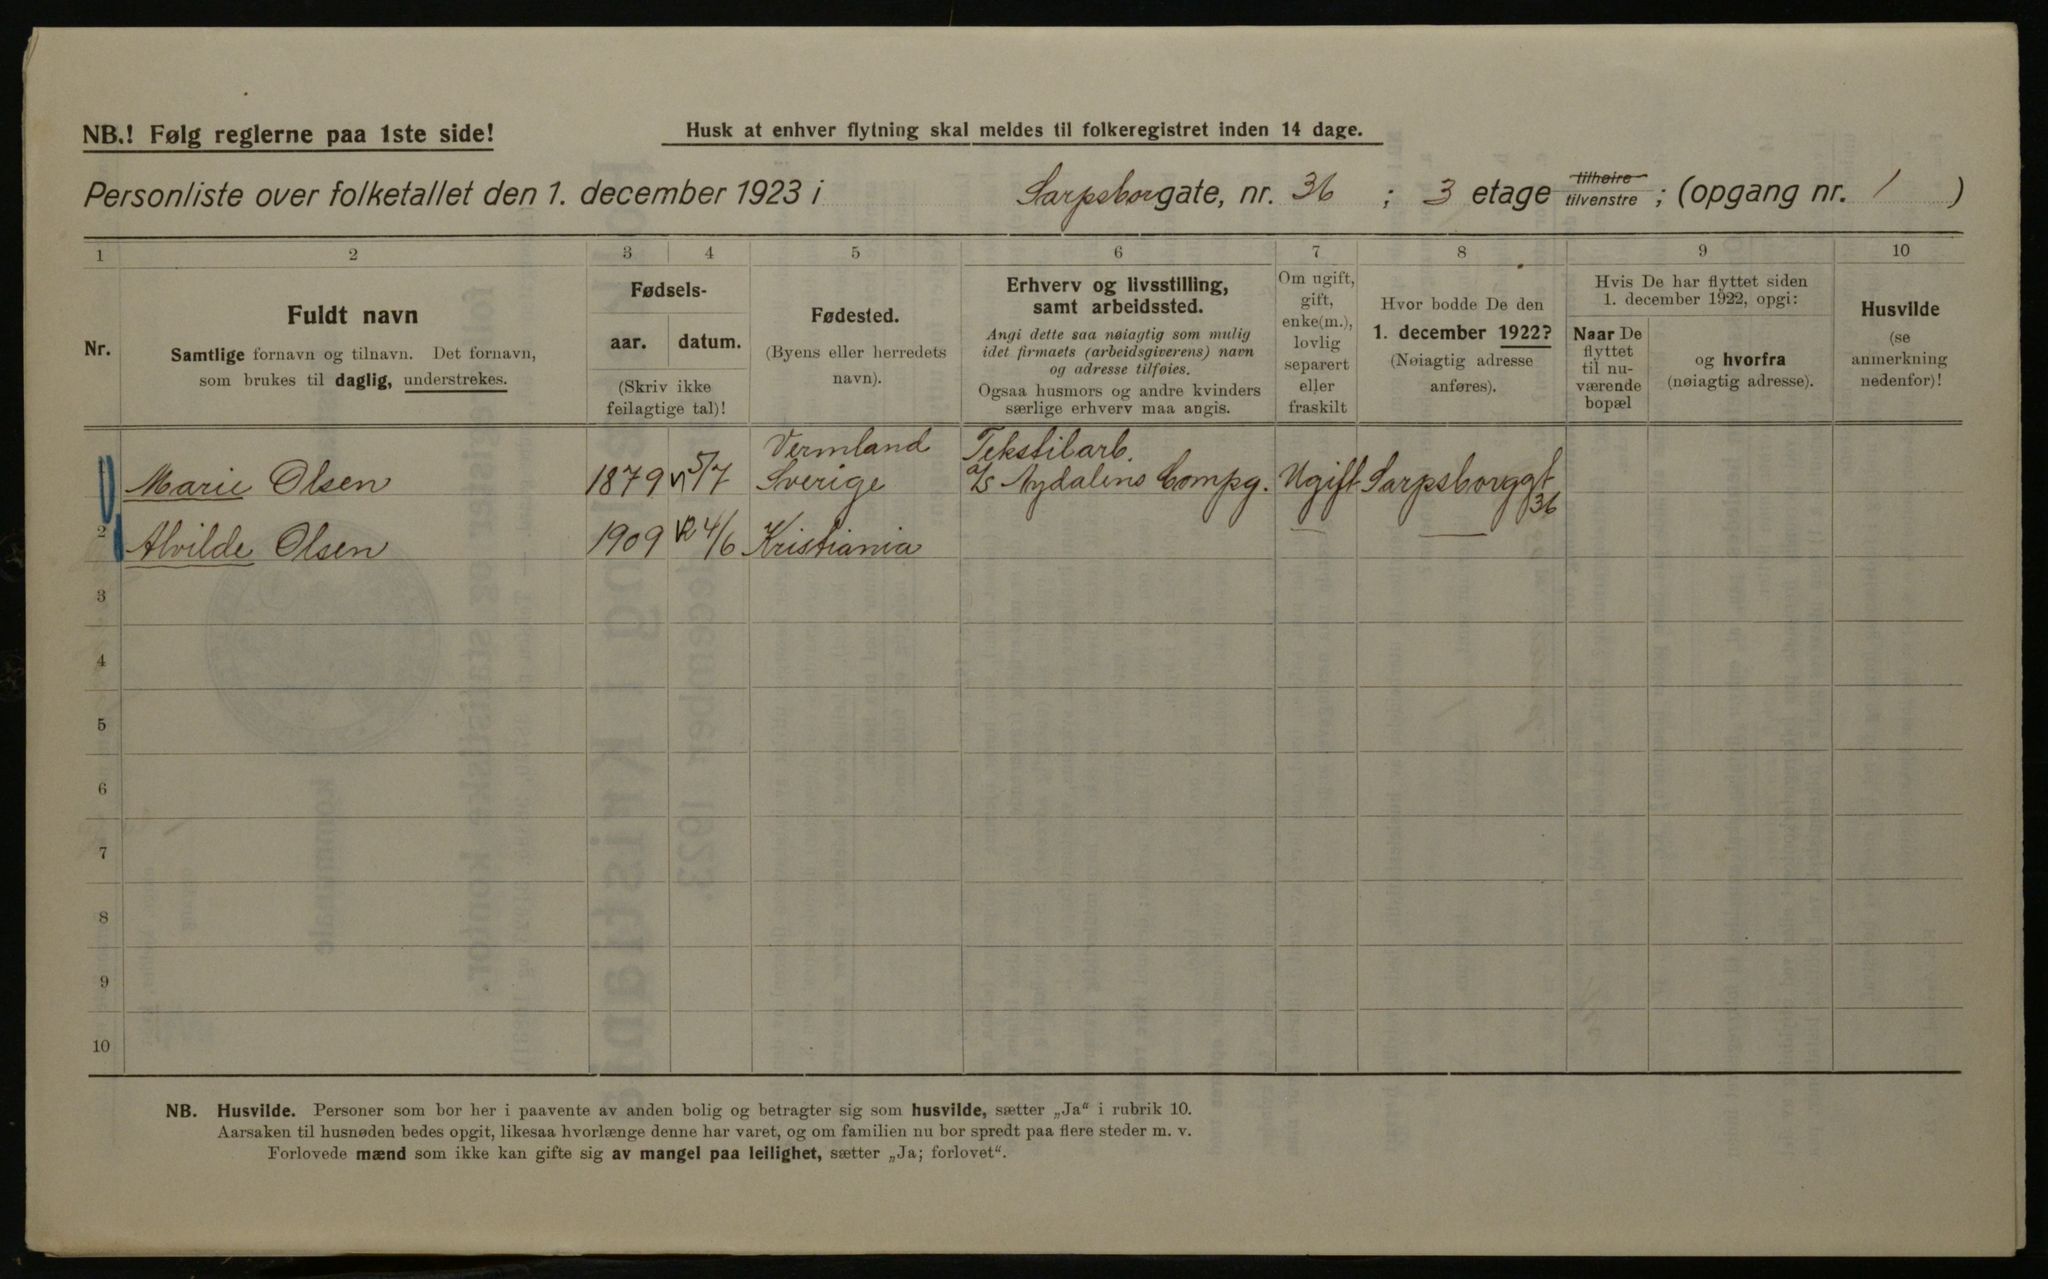 NB.! Følg reglerne paa 1ste side!
Husk at enhver flytning skal meldes til folkeregistret inden 14 dage.
Personliste over folketallet den 1. december 1923 i Sarpsborgate, nr. 36 ; 3 etage tilhøire tilvenstre ; (opgang nr. 1 )
1 2 3 4 5 6 7 8 9 10
Nr.
Fuldt navn
Samtlige fornavn og tilnavn. Det fornavn,
som brukes til daglig, understrekes.
Fødsels-
aar. datum.
(Skriv ikke
feilagtige tal)!
Fødested.
(Byens eller herredets
navn).
Erhverv og livsstilling,
samt arbeidssted.
Angi dette saa nøiagtig som mulig
idet firmaets (arbeidsgiverens) navn
og adresse tilføies.
Ogsaa husmors og andre kvinders
særlige erhverv maa angis.
Om ugift,
gift,
enke(m.),
lovlig
separert
eller
fraskilt
Hvor bodde De den
1. december 1922?
(Nøiagtig adresse
anføres).
Hvis De har flyttet siden
1. december 1922, opgi:
Naar De
flyttet
til nu-
værende
bopæl
og hvorfra
(nøiagtig adresse).
Husvilde
(se
anmerkning
nedenfor)!
Vermland Tekstilarb.
1 Marie Olsen 1879 5/7 Sverige a/s Nydalens Compg. Ugift Sarpsborggt
36
2 Alvilde Olsen 1909 4/6 Kristiania — —
3
4
5
6
7
8
9
10
NB. Husvilde. Personer som bor her i paavente av anden bolig og betragter sig som husvilde, sætter „Ja“ i rubrik 10.
Aarsaken til husnøden bedes opgit, likesaa hvorlænge denne har varet, og om familien nu bor spredt paa flere steder m. v.
Forlovede mænd som ikke kan gifte sig av mangel paa leilighet, sætter „Ja; forlovet“.